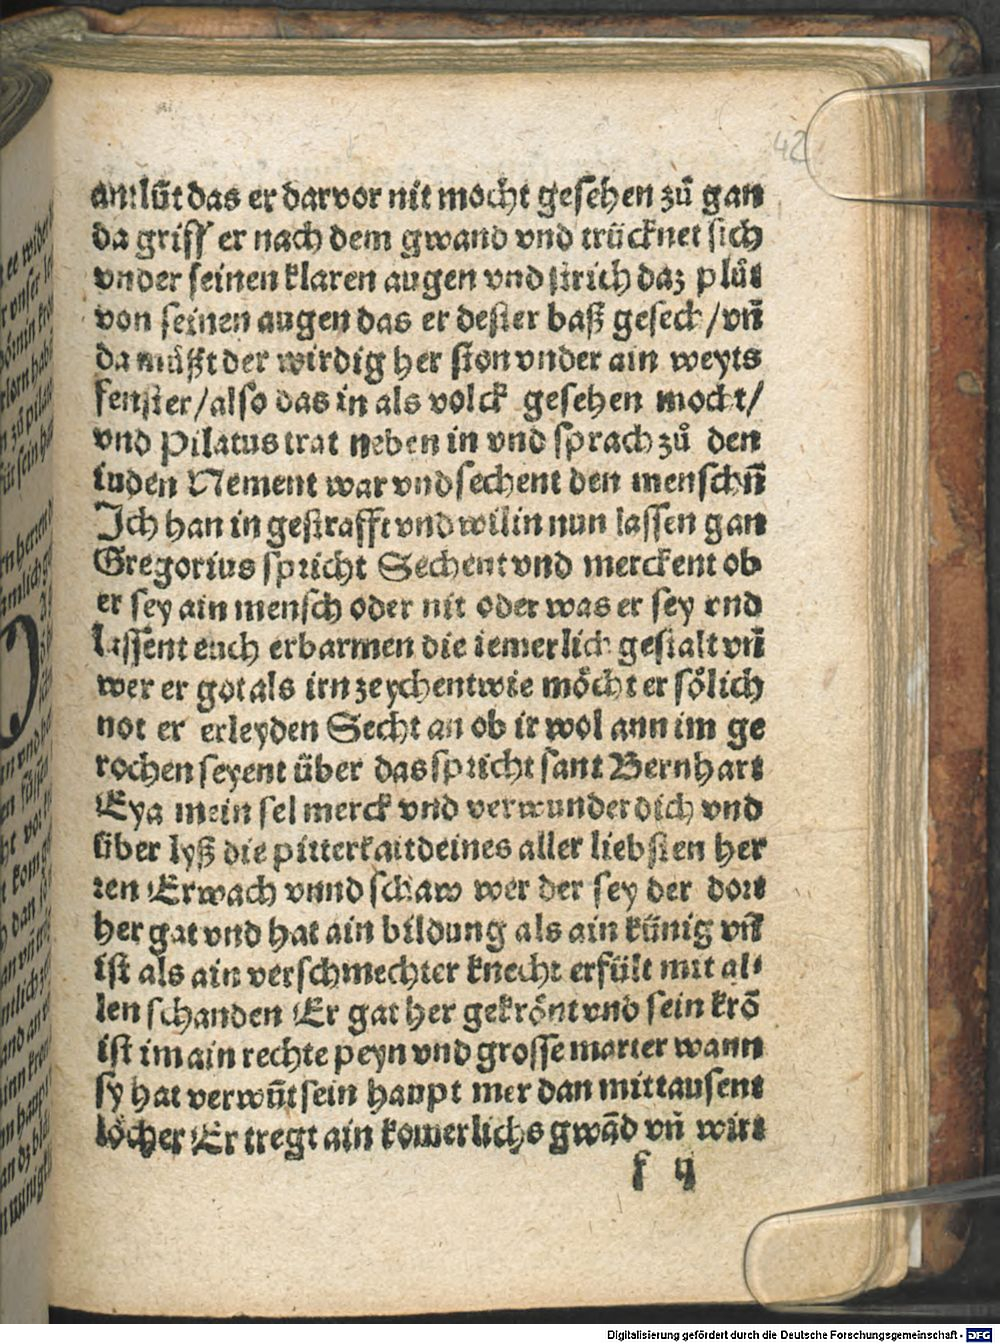 42
antlūt das er darvor nit mocht gesehen zů gan
da griff er nach dem gwand vnd trücknet sich
vnder seinen klaren augen vnd strich daz plůt
von seinen augen das er dester baß gesech/vn̄
da můßt der wirdig her ston vnder ain weyts
fenster/also das in als volck gesehen mocht/
vnd Pilatus trat neben in vnd sprach zů den
iuden Nement war vnd sechent den menschn̄
Ich han in gestrafft vnd wil in nun lassen gan
Gregorius spricht Sechent vnd merckent ob
er sey ain mensch oder nit oder was er sey vnd
lassent euch erbarmen die iemerlich gestalt vn̄
wer er got als irn zeychent wie möcht er sölich
not er erleyden Secht an ob ir wol ann im ge
rochen seyent über das spricht sant Bernhart
Eya mein sel merck vnd verwunder dich vnd
über lyß die pitterkait deines aller liebsten her
ren Erwach vnnd schaw wer der sey der dort
her gat vnd hat ain bildung als ain künig vn̄
ist als ain verschmechter knecht erfült mit al
len schanden Er gat her gekrönt vnd sein krō
ist im ain rechte peyn vnd grosse marter wann
sy hat verwūt sein haupt mer dan mit tausent
löcher Er tregt ain komerlichs gwād vn̄ wirt
f ij
Digitalisierung gefördert durch die Deutsche Forschungsgemeinschaft - DFG